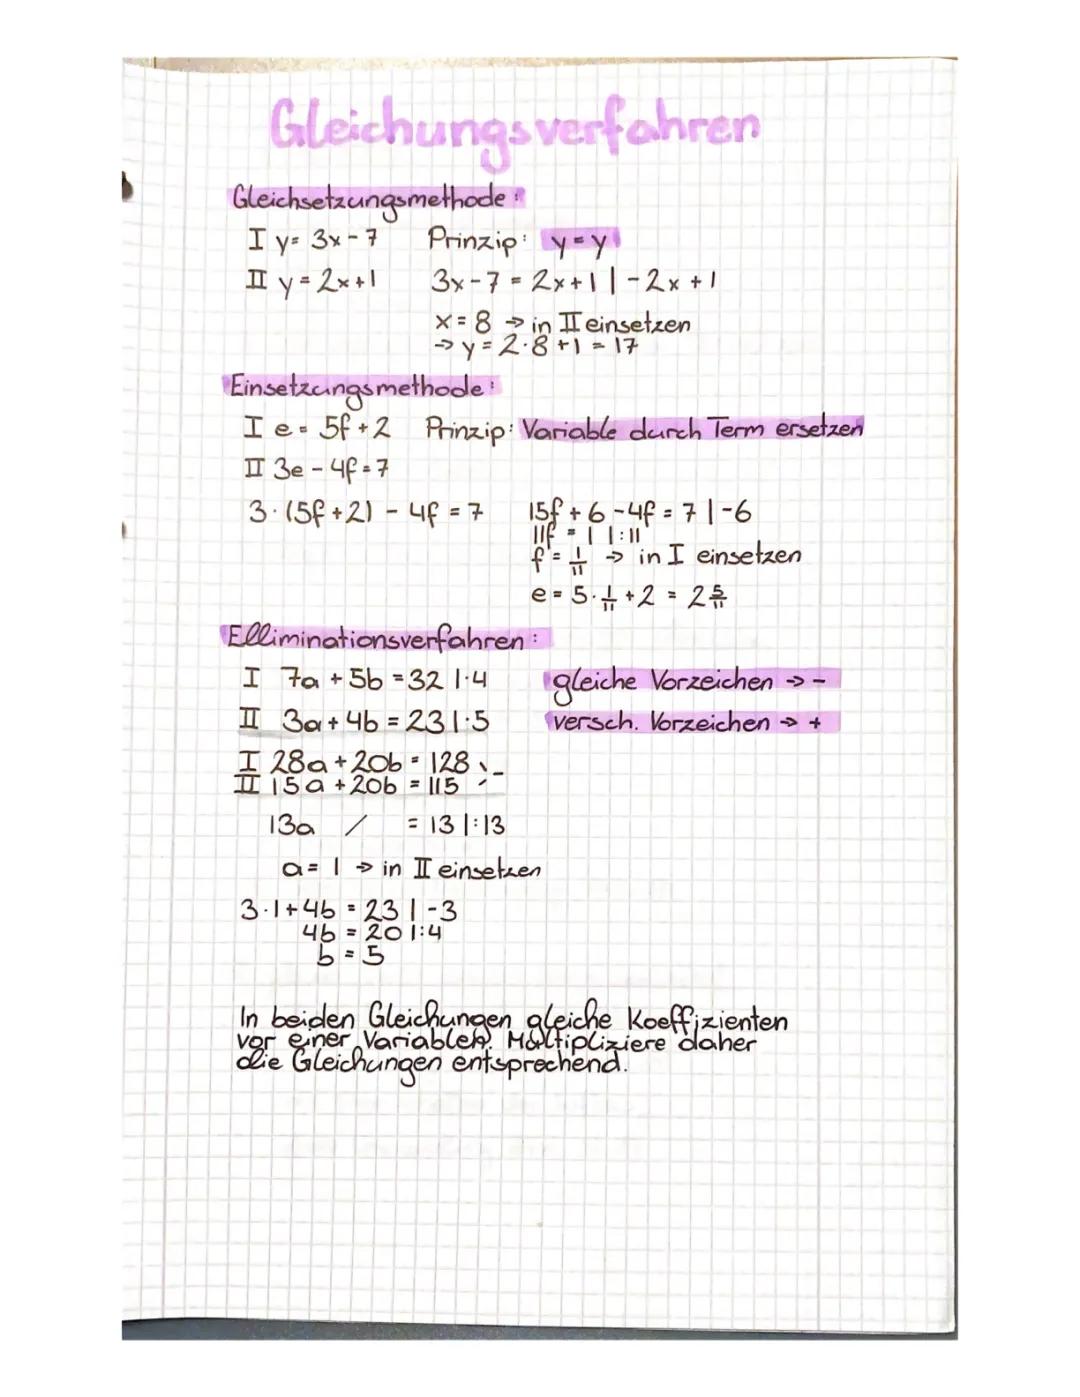 Gleichungsverfahren
Gleichsetzungsmethode:
I y = 3x - 7 Prinzip: y = y
II y = 2x + 1 3x - 7 = 2x + 1 | - 2x + 1
x = 8 → in II einsetzen
→ y = 2·8 + 1 = 17
Einsetzungsmethode:
I e = 5f + 2 Prinzip: Variable durch Term ersetzen
II 3e - 4f = 7
3·(5f + 2) - 4f = 7 15f + 6 - 4f = 7 | -6
11f = 1 | :11
f = 1/11 → in I einsetzen
e = 5·1/11 + 2 = 2 5/11
Elliminationsverfahren:
I 7a + 5b = 32 |·4 gleiche Vorzeichen → -
II 3a + 4b = 23 |·5 versch. Vorzeichen → +
I 28a + 20b = 128
II 15a + 20b = 115 -
13a / = 13 | :13
a = 1 → in II einsetzen
3·1 + 4b = 23 | -3
4b = 20 | :4
b = 5
In beiden Gleichungen gleiche Koeffizienten
vor einer Variablen. Multipliziere daher
die Gleichungen entsprechend.